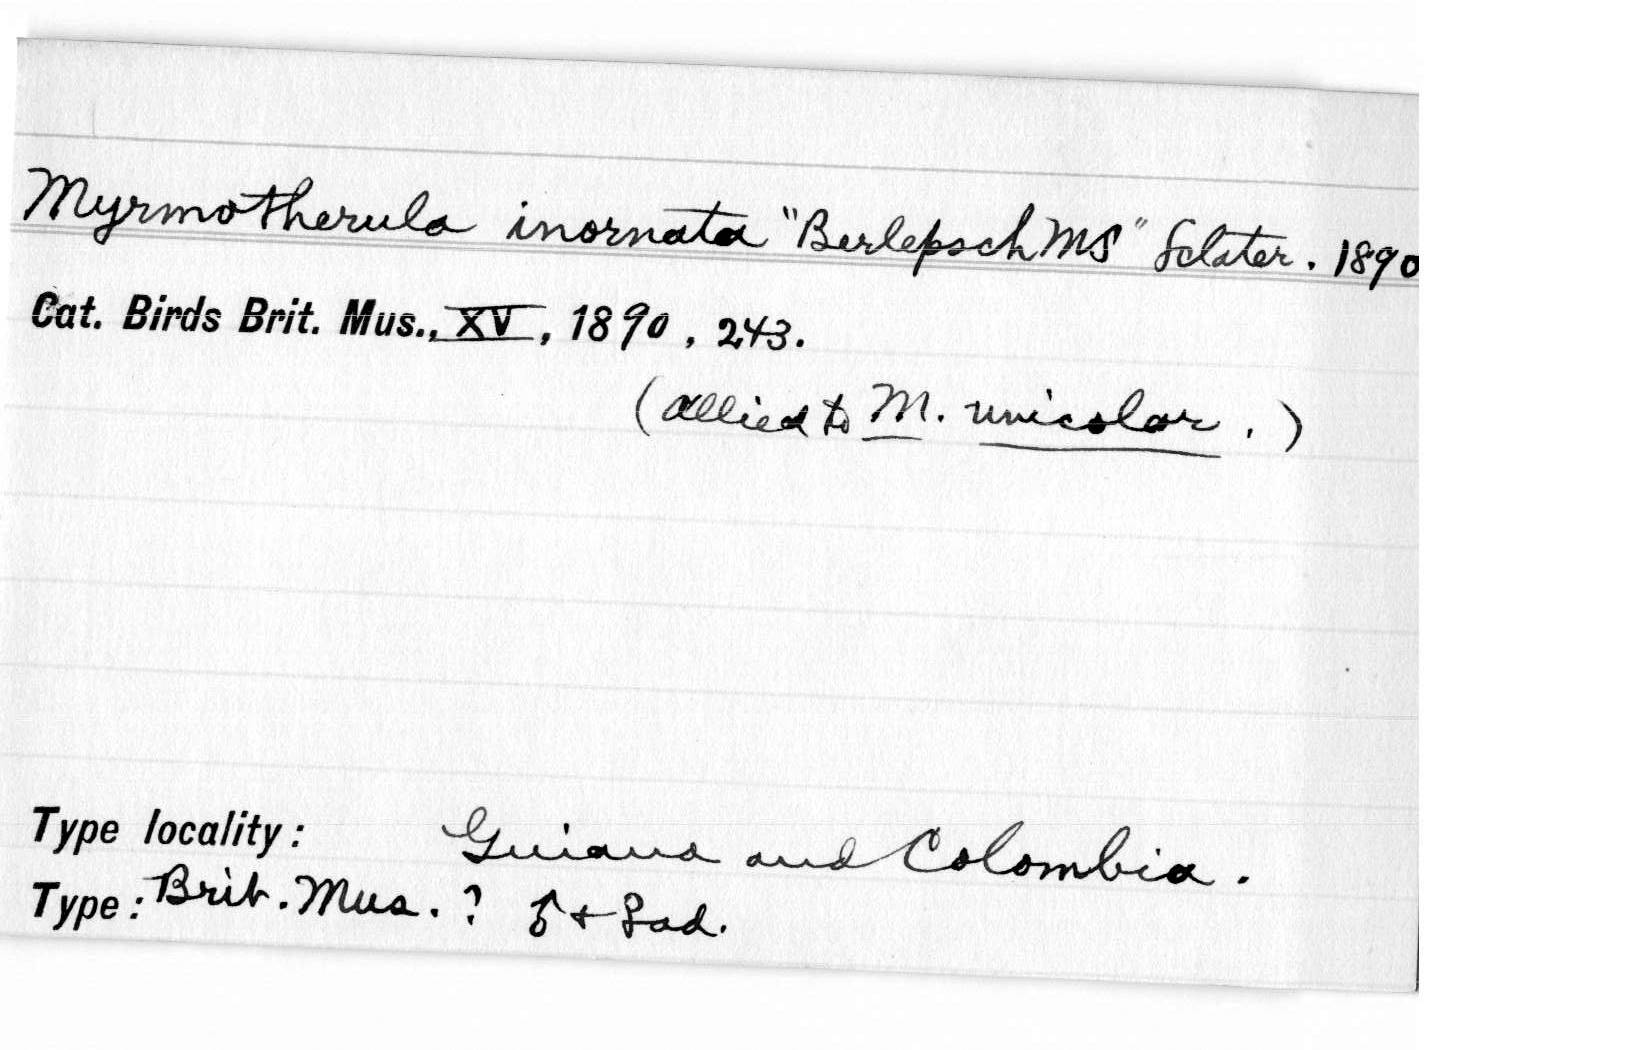 Myrmotherula inornata "Berlepsch MS" Sclater. 1890
Cat. Birds Brit. Mus., XV, 1890, 243.
(allied to M. unicolor.)
Type locality: Guiana and Colombia.
Type: Brit. Mus. ? ♂ + ♀ ad.